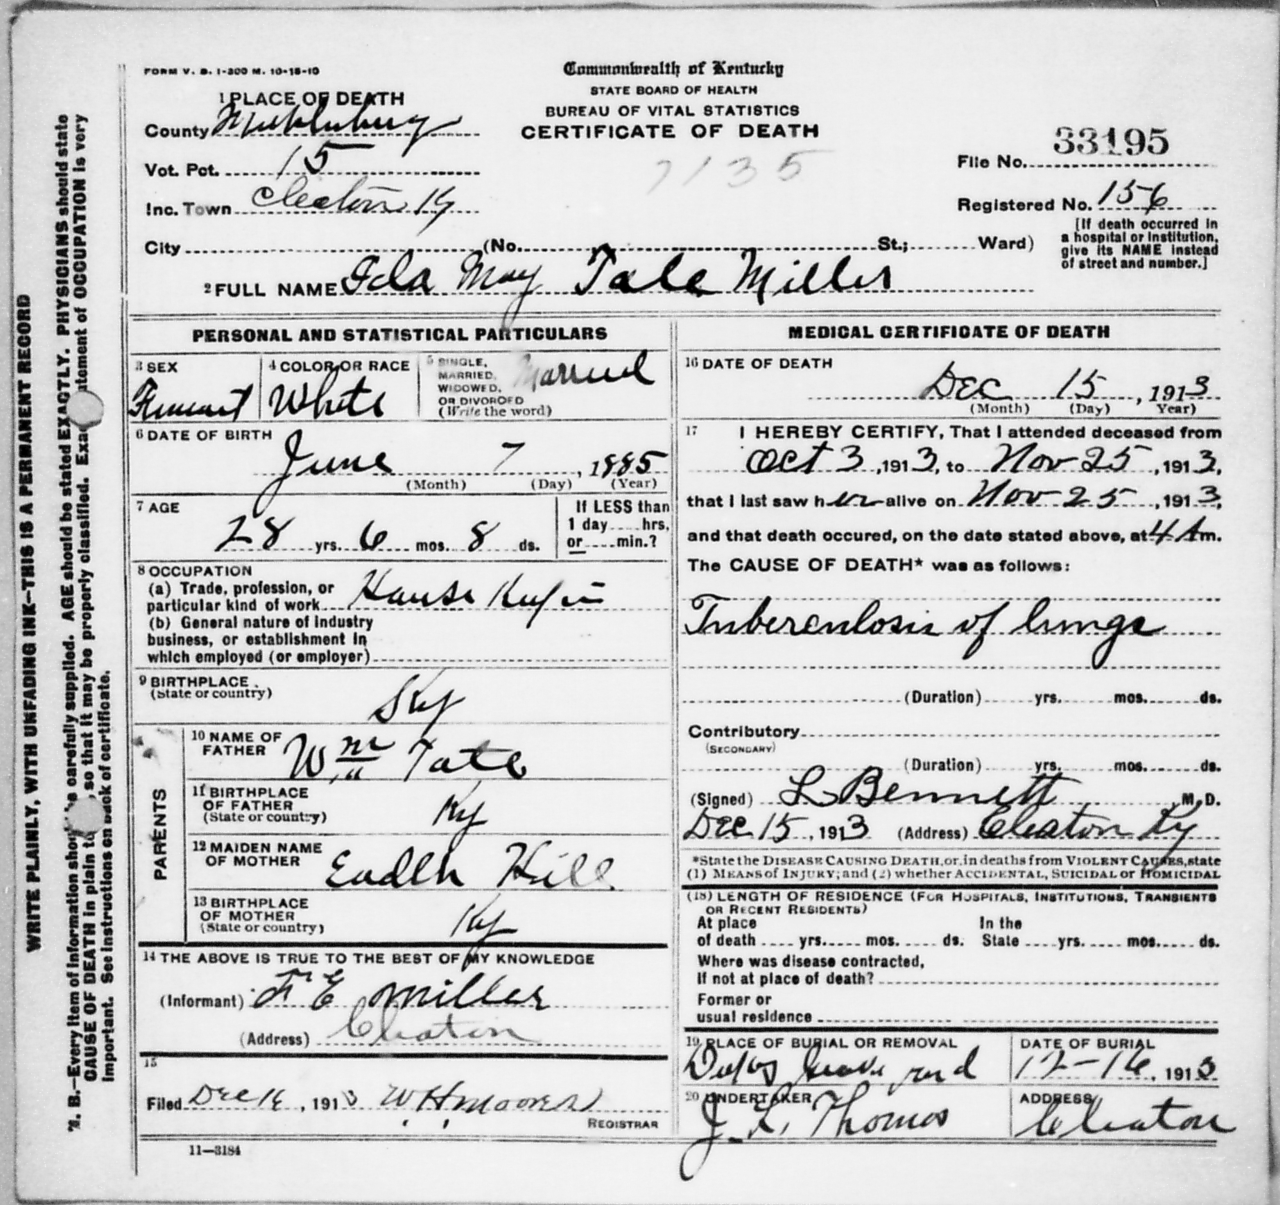 FORM V. S. 1-300 M. 10-18-10
Commonwealth of Kentucky
STATE BOARD OF HEALTH
BUREAU OF VITAL STATISTICS
CERTIFICATE OF DEATH
7135
1 PLACE OF DEATH
County Muhlenburg
Vot. Pct. 15
Inc. Town Cleaton Ky
City (No. St.; Ward)
File No. 33195
Registered No. 156
[If death occurred in
a hospital or institution,
give its NAME instead
of street and number.]
2 FULL NAME Ida May Tate Miller
PERSONAL AND STATISTICAL PARTICULARS
3 SEX
4 COLOR OR RACE White
5 SINGLE,
MARRIED,
WIDOWED,
OR DIVORCED
(Write the word)
Married
6 DATE OF BIRTH
June 7, 1885
(Month) (Day) (Year)
7 AGE
28 yrs. 6 mos. 8 ds.
If LESS than
1 day hrs.
or min.?
8 OCCUPATION
(a) Trade, profession, or
particular kind of work House
(b) General nature of industry
business, or establishment in
which employed (or employer)
9 BIRTHPLACE
(State or country)
Ky
PARENTS
10 NAME OF
FATHER Wm Tate
11 BIRTHPLACE
OF FATHER
(State or country) Ky
12 MAIDEN NAME
OF MOTHER Hill
13 BIRTHPLACE
OF MOTHER
(State or country) Ky
14 THE ABOVE IS TRUE TO THE BEST OF MY KNOWLEDGE
(Informant) F E Miller
(Address) Cleaton
15
Filed Dec 16, 1913 W H Moore
REGISTRAR
11—3184
MEDICAL CERTIFICATE OF DEATH
16 DATE OF DEATH
Dec 15, 1913
(Month) (Day) Year)
17 I HEREBY CERTIFY, That I attended deceased from
Oct 3, 1913, to Nov 25, 1913,
that I last saw her alive on Nov 25, 1913,
and that death occured, on the date stated above, at 4 A m.
The CAUSE OF DEATH* was as follows:
Tuberculosis of lungs
(Duration) yrs. mos. ds.
Contributory
(SECONDARY)
(Duration) yrs. mos. ds.
(Signed) L Bennett M. D.
Dec 15, 1913 (Address) Cleaton Ky
*State the DISEASE CAUSING DEATH, or, in deaths from VIOLENT CAUSES, state
(1) MEANS of INJURY; and (2) whether ACCIDENTAL, SUICIDAL or HOMICIDAL
(18) LENGTH OF RESIDENCE (FOR HOSPITALS, INSTITUTIONS, TRANSIENTS
OR RECENT RESIDENTS)
At place In the
of death yrs. mos. ds. State yrs. mos. ds.
Where was disease contracted,
If not at place of death?
Former or
usual residence
19 PLACE OF BURIAL OR REMOVAL
Grave yard
DATE OF BURIAL
12-16, 1913
20 UNDERTAKER
J. K. Thomas
ADDRESS
Cleaton
WRITE PLAINLY, WITH UNFADING INK—THIS IS A PERMANENT RECORD
N. B.—Every item of information should be carefully supplied. AGE should be stated EXACTLY. PHYSICIANS should state
CAUSE OF DEATH in plain, so that it may be properly classified. Exact statement of OCCUPATION is very
important. See instructions on back of certificate.